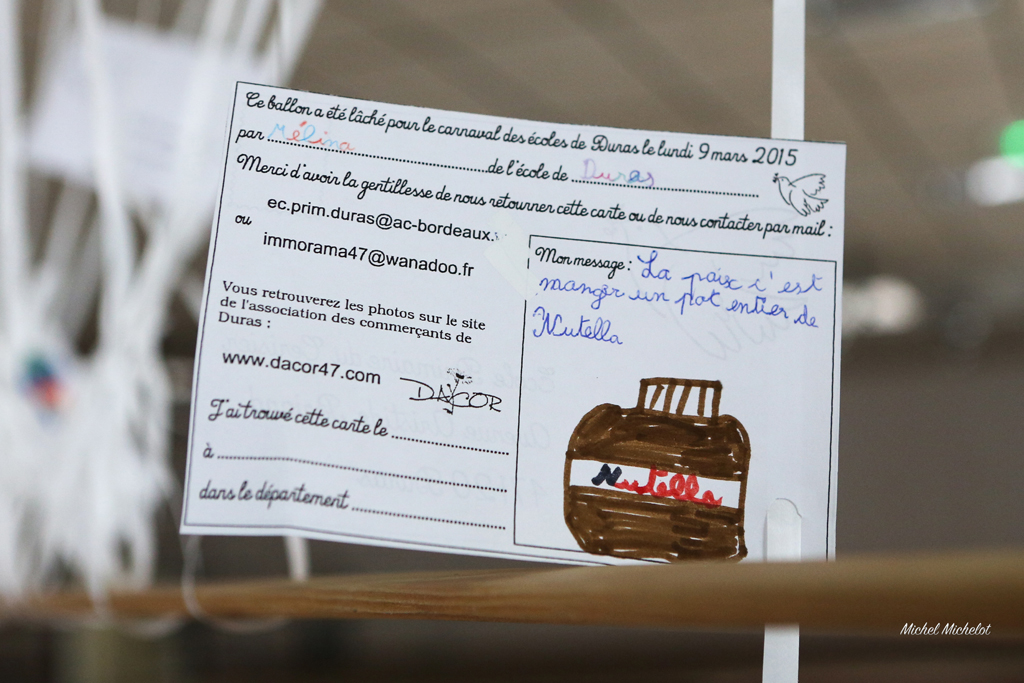 Ce ballon a été lâché pour le carnaval des écoles de Duras le lundi 9 mars 2015
par Mélina de l'école de Duras
Merci d'avoir la gentillesse de nous retourner cette carte ou de nous contacter par mail :
ec.prim.duras@ac-bordeaux.
ou
immorama47@wanadoo.fr
Vous retrouverez les photos sur le site
de l'association des commerçants de
Duras :
www.dacor47.com
DACOR
J'ai trouvé cette carte le
à
dans le département
Mon message : La paix c'est
manger un pot entier de
Nutella
Nutella
Michel Michelot